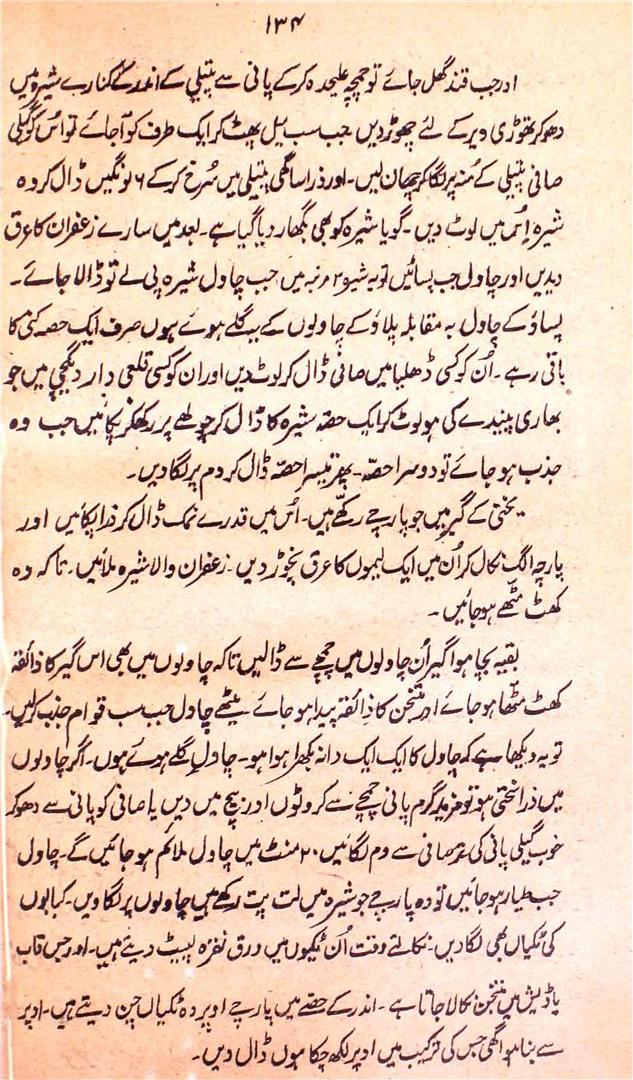 ۱۳۴
اور جب قند گھل جائے تو چمچہ علیحدہ کرکے پانی سے پتیلی کے اندر کے کنارے شیرہ میں
دھو کر تھوڑی دیر کے لئے چھوڑ دیں جب سب میل پھٹ کر ایک طرف کو آجائے تو اس کو گیلی
صافی پتیلی کے منہ پر لگا کر چھان لیں۔ اور ذرا سا گھی پتیلی میں سرخ کرکے ۶ لونگیں ڈال کر وہ
شیرہ اس میں لوٹ دیں۔ گویا شیرہ کو بھی بگھار دیا گیا ہے۔ بعد میں سارے زعفران کا عرق
دیدیں اور چاول جب پسائیں تو یہ شیرہ ۲ مرتبہ میں جب چاول شیرہ پی لے تو ڈالا جائے۔
پساؤ کے چاول بہ مقابلہ پلاؤ کے چاولوں کے یہ گلے ہوئے ہوں صرف ایک حصہ کنی کا
باقی رہے۔ اُن کو کسی ڈھلیا میں صافی ڈال کر لوٹ دیں اور ان کو کسی قلعی دار دیگچی میں جو
بھاری پیندے کی ہو لوٹ کر ایک حصہ شیرہ کا ڈال کر چولھے پر رکھکر پکائیں جب وہ
جذب ہو جائے تو دوسرا حصہ۔ پھر تیسرا حصہ ڈال کر دم پر لگا دیں۔
یخنی کے گیر میں جو پارچے رکھے ہیں۔ اُس میں قدرے نمک ڈال کر ذرا پکائیں اور
پارچہ الگ نکال کر اُن میں ایک لیموں کا عرق نچوڑ دیں۔ زعفران والا شیرہ ملائیں۔ تاکہ وہ
کھٹ مٹھے ہو جائیں۔
بقیہ بچا ہوا گیر اُن چاولوں میں چمچے سے ڈالیں تاکہ چاولوں میں بھی اس گیر کا ذائقہ
کھٹ مٹھا ہو جائے اور متنجن کا ذائقہ پیدا ہو جائے میٹھے چاول جب سب قوام جذب کرلیں۔
تو یہ دیکھا ہے کہ چاول کا ایک ایک دانہ بکھرا ہوا ہو۔ چاول گلے ہوئے ہوں۔ اگر چاولوں
میں ذرا سختی ہو تو مزید گرم پانی چمچے سے کروٹوں اور بیچ میں دیں یا صافی کو پانی سے دھو کر
خوب گیلی پانی کی صافی سے دم لگائیں ۲۰ منٹ میں چاول ملائم ہو جائیں گے۔ چاول
جب طیار ہو جائیں تو وہ پارچے جو شیرہ میں لت پت رکھے ہیں چاولوں پر لگا دیں۔ کبابوں
کی ٹکیاں بھی لگا دیں۔ نکالتے وقت اُن ٹکیوں میں ورق نقرہ لپیٹ دیتے ہیں۔ اور جس قاب
یا ڈیش میں متنجن نکالا جاتا ہے۔ اندر کے حصے میں پارچے اوپر وہ ٹکیاں چن دیتے ہیں۔ اوپر
سے بنا ہوا گھی جس کی ترکیب میں اوپر لکھ چکا ہوں ڈال دیں۔